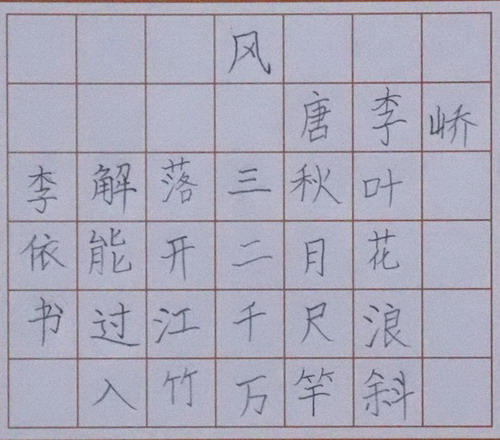 风
唐李峤
解落三秋叶
能开二月花
过江千尺浪
入竹万竿斜
李依书